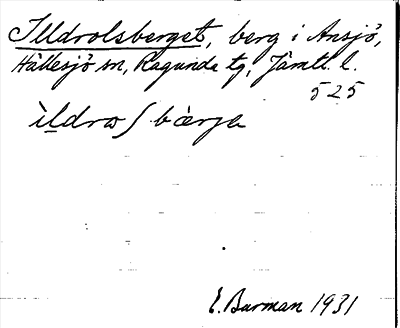 Illdrolsberget, berg i Ansjö,
Hällesjö sn, Ragunda tg, Jämtl. l.
525
ìldro ʃ bàrje
E. Burman 1931